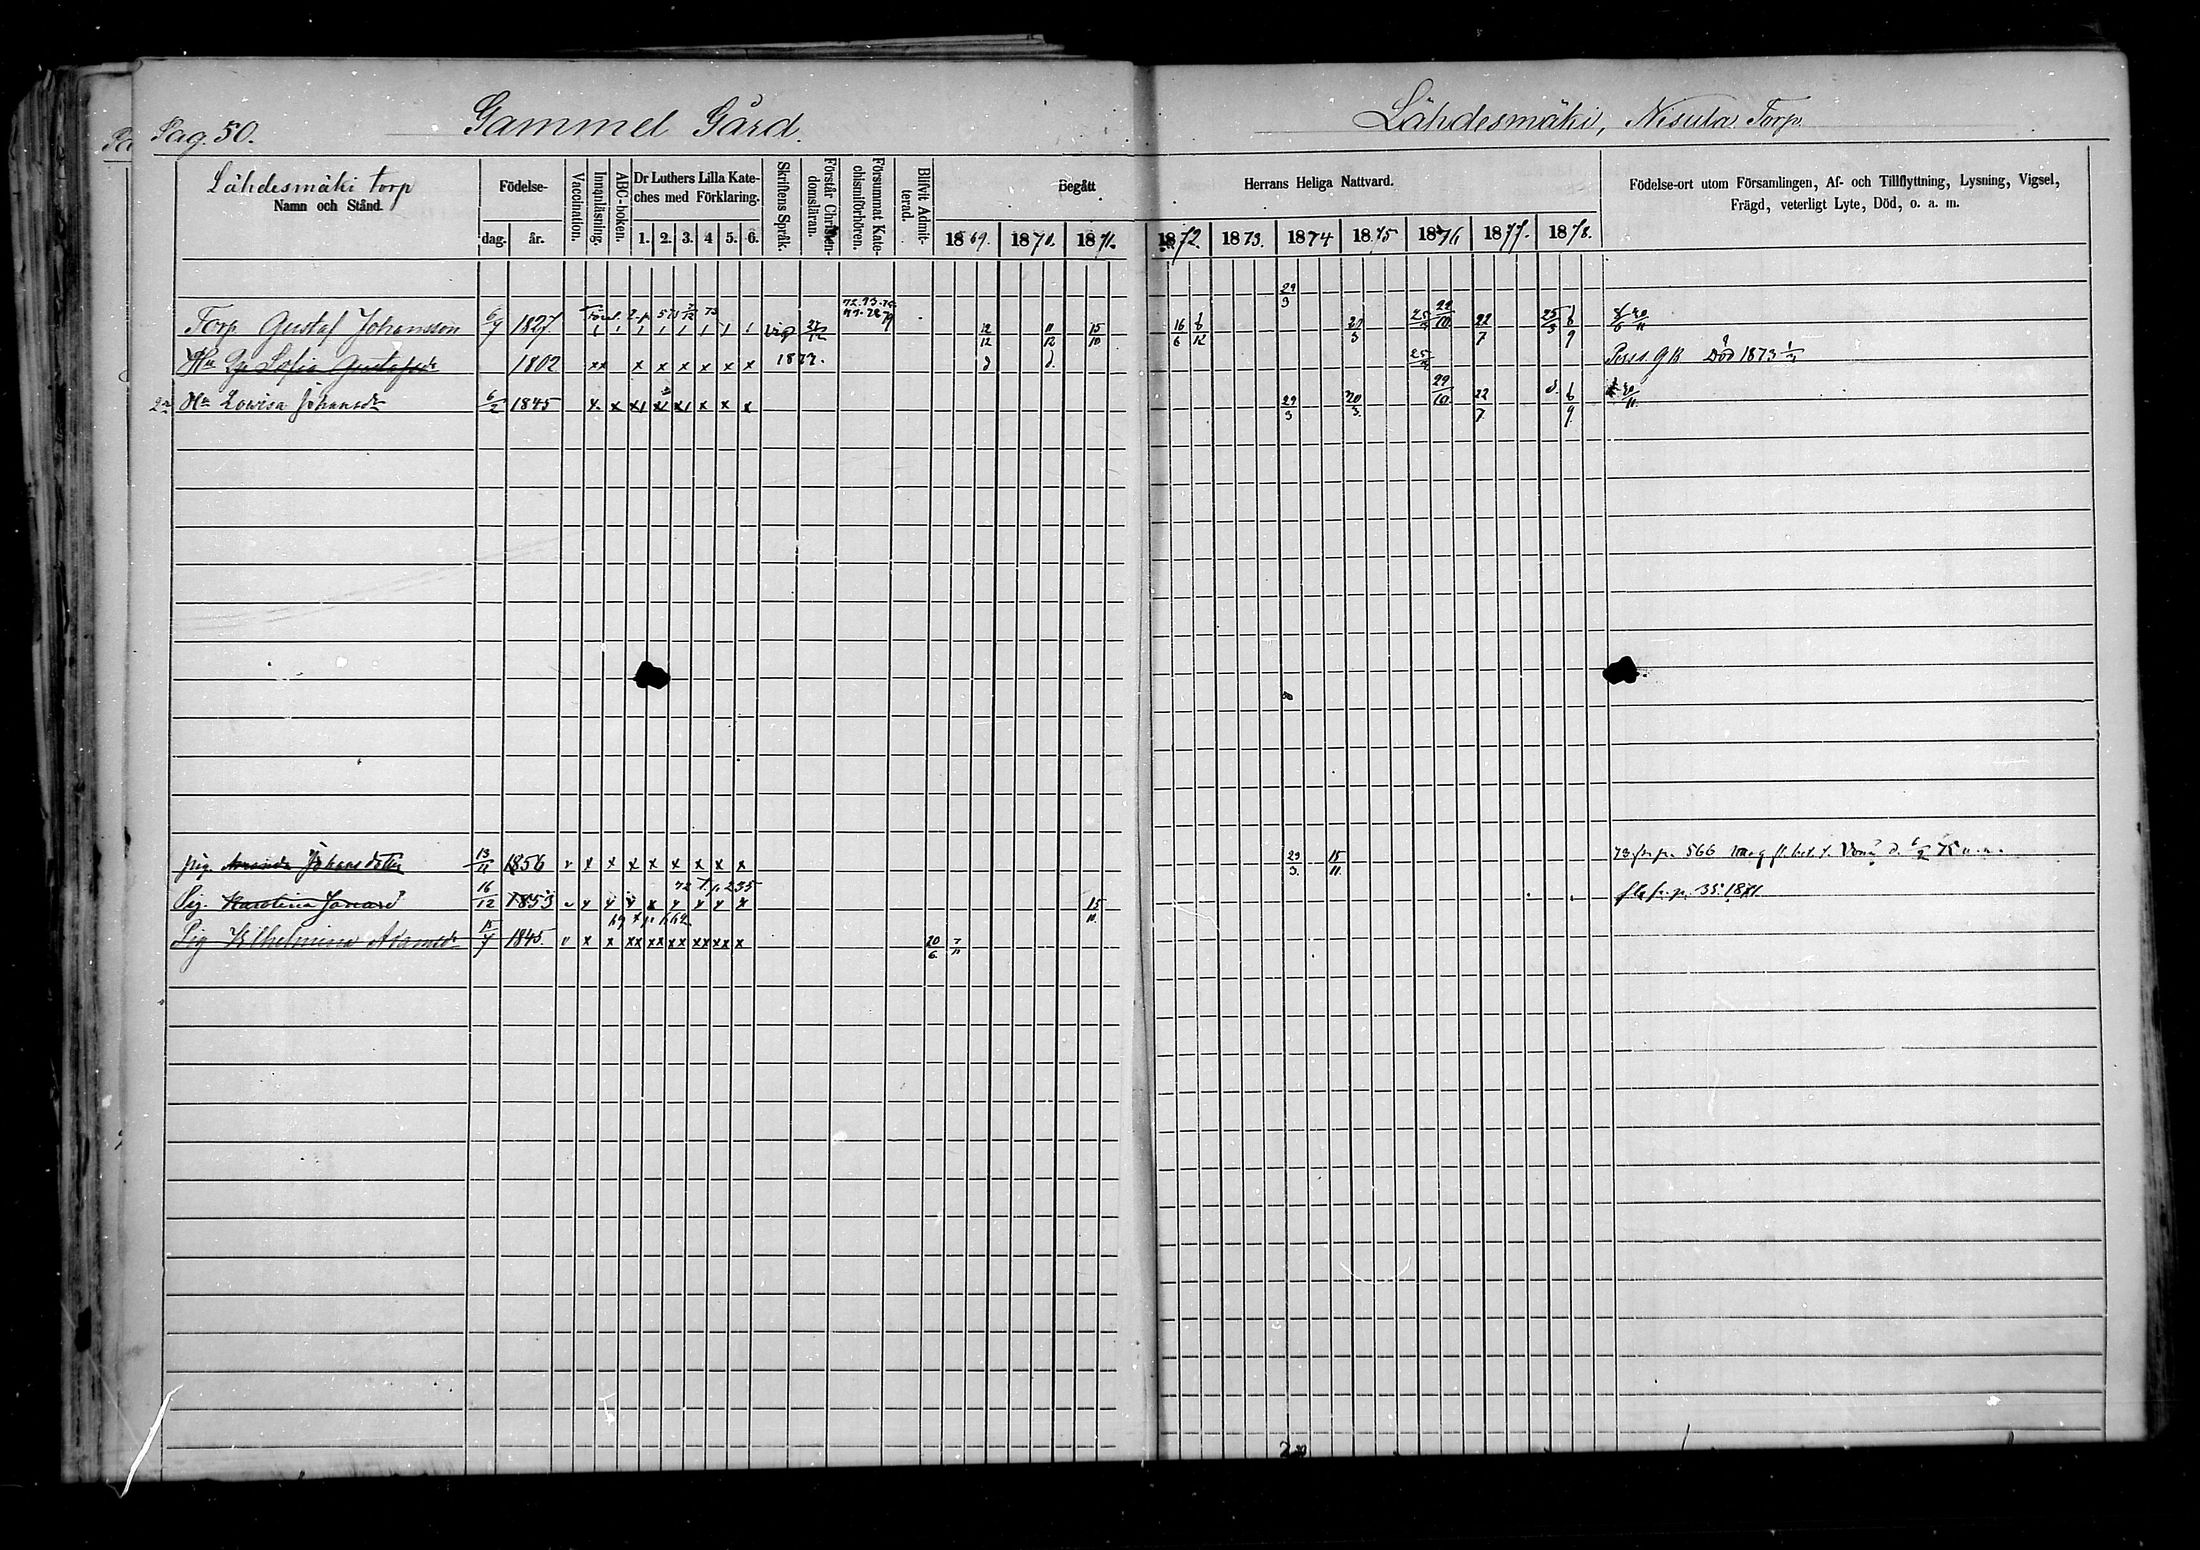 Pag. 50. Gammel Gård Lähdesmäki, Nisula Torp.
Lähdesmäki torp
Namn och Stånd.
Födelse-
dag. år.
Vaccination.
Innanläsning.
ABC-boken.
Dr Luthers Lilla Kate-
ches med Förklaring.
1. 2. 3. 4 5. 6.
Skriftens Språk.
Förstår Christen-
domsläran.
Försummat Kate-
chismiförhören.
Blifvit Admit-
terad.
Begått Herrans Heliga Nattvard.
1869. 1870. 1871. 1872. 1873. 1874 1875 1876 1877. 1878.
Födelse-ort utom Församlingen, Af- och Tillflyttning, Lysning, Vigsel,
Frägd, veterligt Lyte, Död, o. a. m.
Torp Gustaf Johansson 6/7 1827 12/12 11/12 15/10 16/6 6/12 29/3 21/3 25/ 29/10 22/7 25/3 6/9
Hu Sofia Gustafsdr 1802 x x x x x x x x 1877. Död 1873
2a Hu Lowisa Johansdr 6/2 1845 x x x x x x x x 29/3 20/3 29/10 22/7 6/9
pig. Amanda Johansdotter 13/11 1856 v x x x x x x x x 29/3 15/11 73 fr. p. 566
Pig. Karolina 16/12 1853 15/10 fr. p. 35. 1871
69 t. p. 662
Pig Wilhelmina Adamsdr 15/7 1845. v x x xx xx xx xx xx x 20/6 7/11